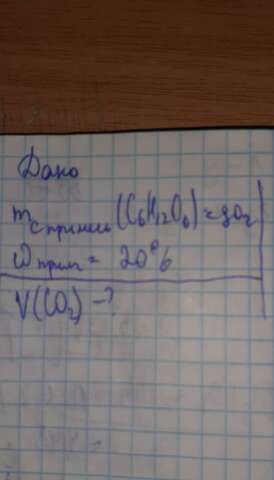 Дано
m с примеси (C₆H₁₂O₆) = 90г
ω прим = 20%
V(CO₂) - ?